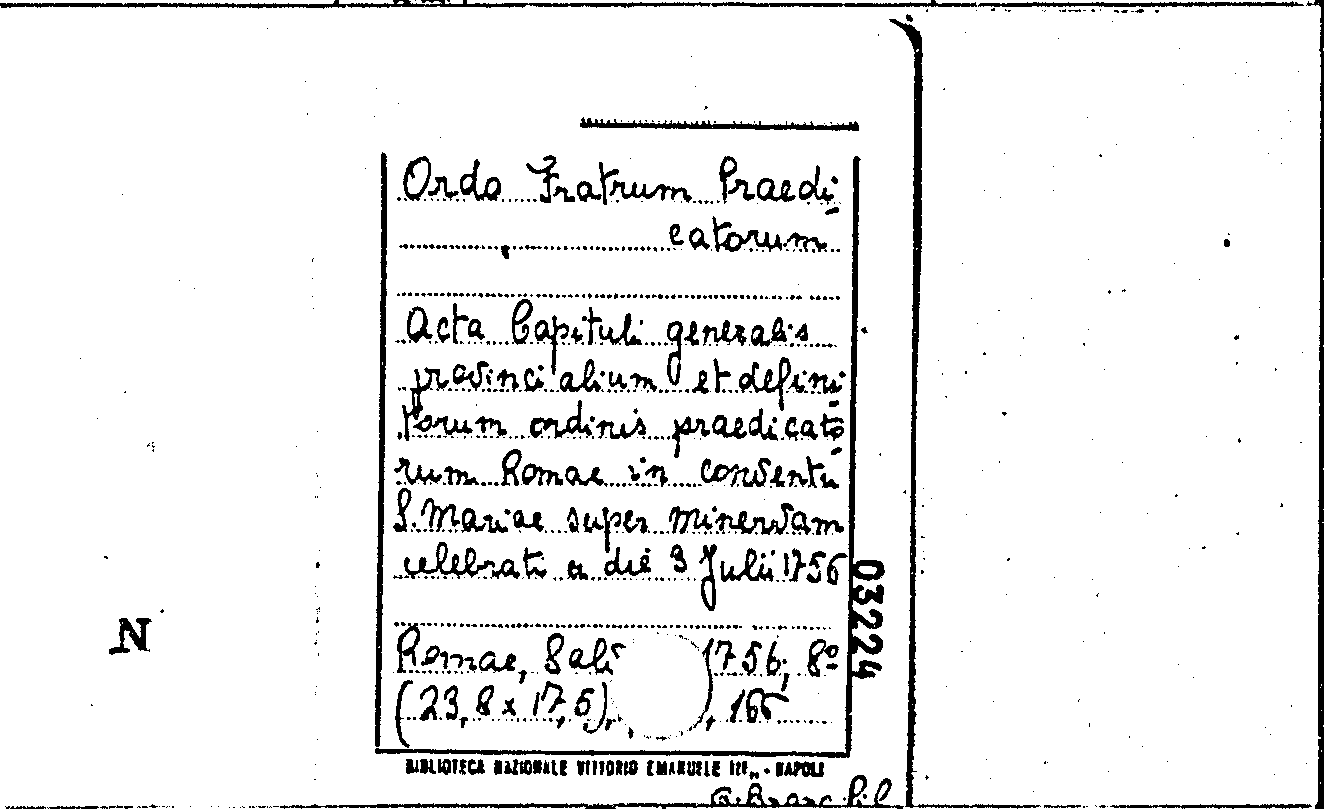 Ordo Fratrum Praedi-
catorum
Acta Capituli generalis
provincialium et defini-
torum ordinis praedicato-
rum Romae in conventu
S. Mariae super minervam
celebrati a die 3 Julii 1756
Romae, 1756; 8º
(23,8 x 17,5), , 166
BIBLIOTECA NAZIONALE VITTORIO EMANUELE III„ - NAPOLI
03224
N